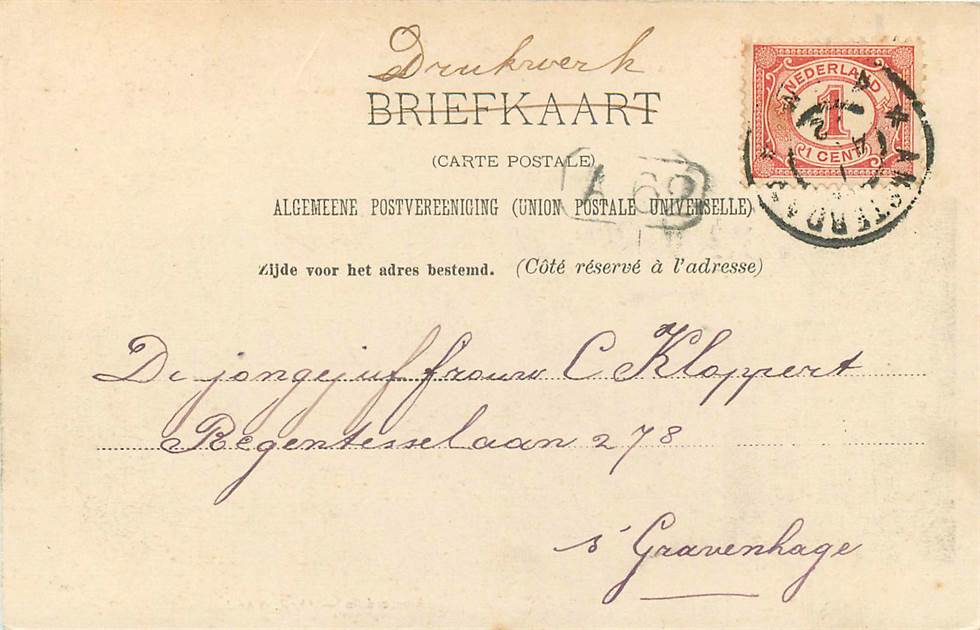 Drukwerk
BRIEFKAART
(CARTE POSTALE)
ALGEMEENE POSTVEREENIGING (UNION POSTALE UNIVERSELLE)
Zijde voor het adres bestemd. (Côté réservé à l'adresse)
NEDERLAND
1
1 CENT
AMSTERDAM
A 62
De jongejuffrouw C Kloppert
Regentesselaan 278
s' Gravenhage